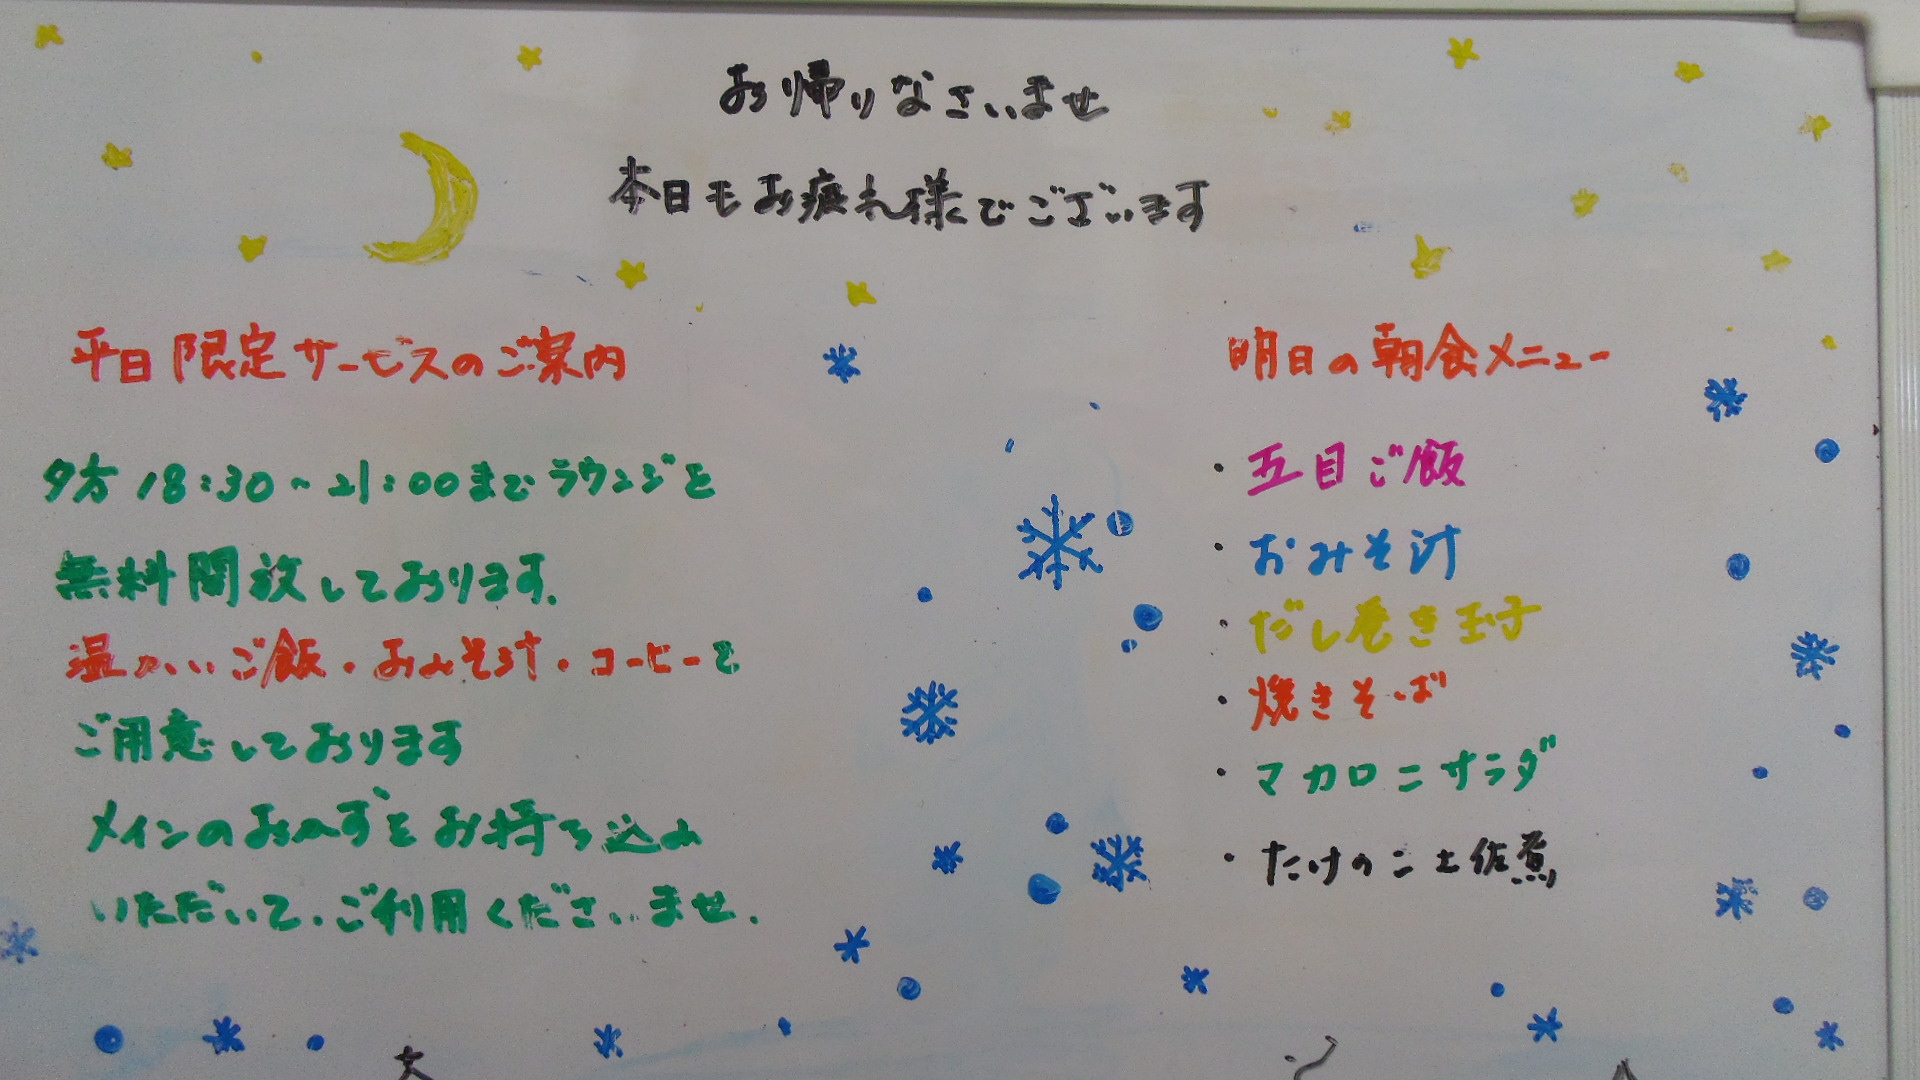 お帰りなさいませ
本日もお疲れ様でございます
平日限定サービスのご案内
夕方18:30~21:00までラウンジを
無料開放しております。
温かいご飯・おみそ汁・コーヒーを
ご用意しております
メインのおかずをお持ち込み
いただいて、ご利用くださいませ。
明日の朝食メニュー
・五目ご飯
・おみそ汁
・だし巻き玉子
・焼きそば
・マカロニサラダ
・たけのこ土佐煮